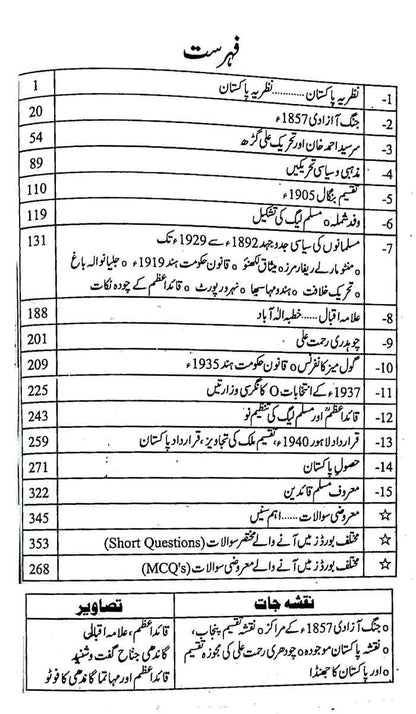 فہرست
1- نظریہ پاکستان ............ نظریہ پاکستان 1
2- جنگ آزادی 1857ء 20
3- سرسید احمد خان اور تحریک علی گڑھ 54
4- مذہبی و سیاسی تحریکیں 89
5- تقسیم بنگال 1905ء 110
6- وفد شملہ ٥ مسلم لیگ کی تشکیل 119
7- مسلمانوں کی سیاسی جدوجہد 1892ء سے 1929ء تک 131
٥ منٹو مارلے ریفارمرز ٥ میثاق لکھنؤ ٥ قانون حکومت ہند 1919ء ٥ جلیانوالہ باغ
٥ تحریک خلافت ٥ ہندو مہاسبھا ٥ نہرو رپورٹ ٥ قائداعظم کے چودہ نکات
8- علامہ اقبال ...... خطبہ الٰہ آباد 188
9- چوہدری رحمت علی 201
10- گول میز کانفرنس ٥ قانون حکومت ہند 1935ء 209
11- 1937ء کے انتخابات O کانگرسی وزارتیں 225
12- قائداعظمؒ اور مسلم لیگ کی تنظیم نو 243
13- قرارداد لاہور 1940ء، تقسیم ملک کی تجاویز، قرارداد پاکستان 259
14- حصول پاکستان 271
15- معروف مسلم قائدین 322
☆ معروضی سوالات ...... اہم سنیں 345
☆ مختلف بورڈز میں آنے والے مختصر سوالات (Short Questions) 353
☆ مختلف بورڈز میں آنے والے معروضی سوالات (MCQ's) 268
نقشہ جات
٥ جنگ آزادی 1857ء کے مراکز ٥ نقشہ تقسیم پنجاب،
٥ نقشہ پاکستان موجودہ ٥ چودھری رحمت علی کی مجوزہ تقسیم
٥ اور پاکستان کا جھنڈا
تصاویر
قائداعظم، علامہ اقبالی
گاندھی جناح گفت و شنید
قائداعظم اور مہاتما گاندھی کا فوٹو